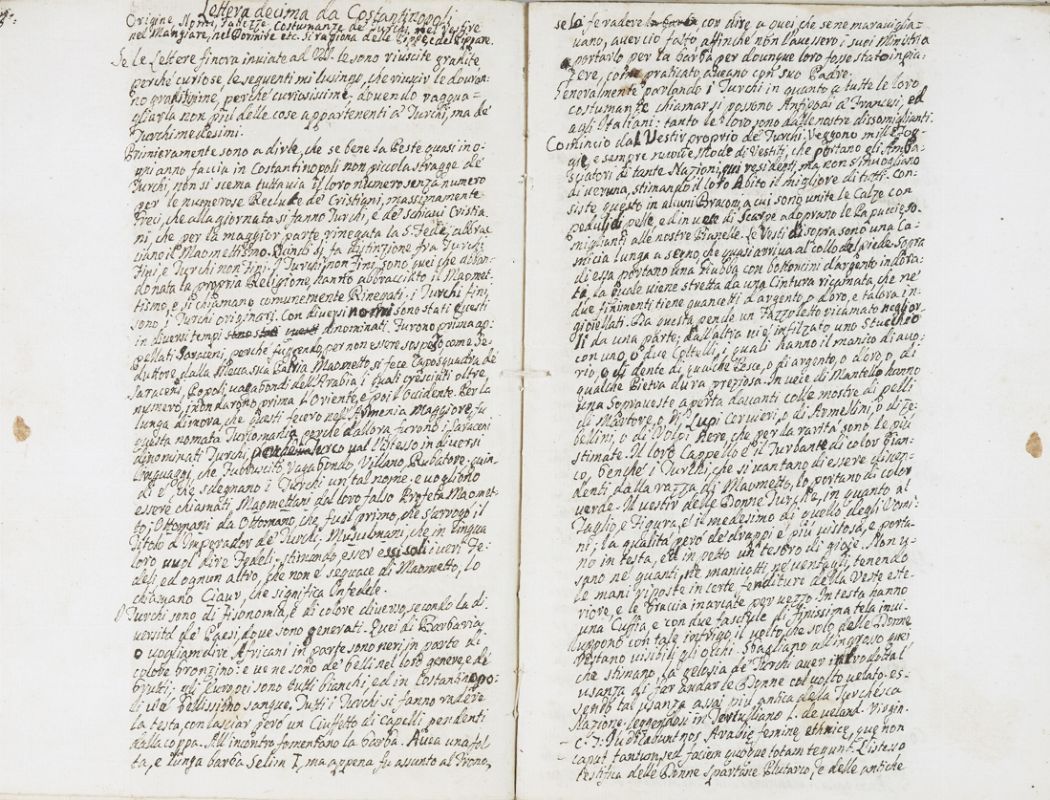 Lettera decima da Costantinopoli
Origine, Nomi, Fattezze, Costumanze de' Turchi, nel Vestire
nel Mangiare, nel Dormire etc. si ragiona delle
Se le Lettere finora inviate ad VV. le sono riuscite gradite
perché curiose, le seguenti mi lusingo, che riuscir le dovran-
no gratissime, perché curiosissime, dovendo raggua-
gliarla non più delle cose appartenenti a' Turchi, ma de'
Turchi medesimi.
Primieramente sono a dirle, che se bene la Peste quasi in o-
gni anno faccia in Costantinopoli non piccola strage de'
Turchi, non si scema tuttavia il loro numero senza numero
per le numerose Reclute de' Cristiani, massimamente
Greci, che alla giornata si fanno Turchi, e de' schiavi Cristia-
ni, che per la maggior parte rinegata la S. Fede, abbrac-
ciano il Maomettismo. Quindi si fa distinzione fra Turchi
Fini, e Turchi non Fini. I Turchi non Fini sono quei che abban-
donata la propria Religione hanno abbracciato il Maomet-
tismo, e si chiamano comunemente Rinegati: i Turchi fini
sono i Turchi originari. Con diversi nomi sono stati questi
in diversi tempi denominati. Furono prima ap-
pellati Saraceni, perché fuggendo, per non essere sospeso come Se-
duttore, dalla Mecca sua Patria Maometto si fece Caposquadra de'
Saraceni, Popoli vagabondi dell'Arabia, i quali cresciuti oltre
numero, inondarono prima l'Oriente, e poi l'Occidente. Per la
lunga dimora, che questi fecero nell'Armenia Maggiore, fu
questa nomata Turcomania, perche d'allora furono i Saraceni
denominati Turchi, val l'istesso in diversi
linguaggi, che Vagabondo, Villano, Rubatore, quin-
di è, che sdegnano i Turchi un tal nome, e vogliono
essere chiamati, Maomettani dal loro falso Profeta Maomet-
to; Ottomani da Ottomano, che fu il primo, che s'arrogò il
Titolo d'Imperador de' Turchi; Musulmani, che in lingua
loro vuol dire Fedeli, stimando esser essi soli i veri Fe-
deli ed ognun altro, che non è seguace di Maometto, lo
chiamano Ciaur, che significa Infedele.
I Turchi sono di fisonomia, e di colore diverso, secondo la di-
versità de' Paesi, dove sono generati. Quei di Barbaria
o vogliam dire Africani in parte sono neri, in parte di
colore bronzino: e ve ne sono de' belli nel loro genere, e de'
brutti; gli Europei sono tutti bianchi, ed in Costantinopo-
li v'è bellissimo sangue. Tutti i Turchi si fanno radere
la testa con lasciar però un Ciuffetto di capelli pendenti
dalla coppa. All'incontro fomentano la barba. Avea una fol-
ta, e lunga barba Selim I, ma appena fu assunto al Trono,
se la fe radere con dire a quei che se ne maraviglia-
vano, aver ciò fatto affinché non l'avessero i suoi Ministri a
portarlo per la barba per dovunque loro fosse stato in pia-
cere, come praticato aveano con suo Padre.
Generalmente parlando i Turchi in quanto a tutte le loro
costumanze chiamar si possono Antipodi a' Francesi, ed
agli Italiani: tanto le loro sono dalle nostre dissomiglianti.
Comincio dal Vestir proprio de' Turchi. Veggono mille fog-
gie, e sempre nuove Mode di Vestiti, che portano gli Amba-
sciatori di tante Nazioni, qui residenti, ma non s'invogliano
di veruna, stimando il loro Abito il migliore di tutti. Con-
siste questo in alcuni Braconi, a cui sono unite le Calze con
peduli di pelle, ed in vece di Scarpe adoprano le Papuccie so-
miglianti alle nostre Pianelle. Le Vesti di sopra sono una Ca-
micia lunga a segno, che quasi arriva al collo del piede. Sopra
di essa portano una Giubba con bottoncini d'argento indora-
to, la quale viene stretta da una Cintura ricamata, che ne'
due finimenti tiene quancetti d'argento, o d'oro, e talora in-
gioiellati. Da questa pende un Fazzoletto ricamato
da una parte; dall'altra vi è infilzato uno Stucchio
con uno, o due Coltelli, i quali hanno il manico di avo-
rio, o di dente di qualche Pesce, o di argento, o d'oro, o di
qualche Pietra dura preziosa. In vece di Mantello hanno
una Sopraveste aperta davanti colle mostre di pelli
di Martore, o di Lupi Cervieri, o di Armellini, o di Ze-
bellini, o di Volpi Nere, che per la rarità sono le più
stimate. Il loro Cappello è il Turbante di color bian-
co, benché i Turchi, che si vantano di essere discen-
denti dalla razza di Maometto, lo portano di color
verde. Il vestir delle Donne Turche, in quanto al
Taglio, e Figura, è il medesimo di quello degli Uomi-
ni; la qualità però de' drappi è più vistosa, e porta-
no in testa, ed in petto un tesoro di gioie. Non u-
sano ne' quanti, ne manicotti ne ventagli, tenendo
le mani riposte in certe fenditure della Veste este-
riore, e le braccia inarcate per vezzo. In testa hanno
una Cuffia, e con due fasciole di finissima tela invi-
luppono con tale intrigo il volto, che solo delle Donne
restano visibili gli occhi. Sbagliano all'ingrosso quei
che stimano, la gelosia de' Turchi aver introdotta l'
usanza di far andar le Donne col volto velato, es-
sendo tal usanza assai più antica della Turchesca
Nazione, leggendosi in Tertulliano L. de veland. Virgin.
c. 7. Judicabunt nos Arabie femine ethnice, que non
caput tantum, sed faciem quoque totam tegunt. L'istesso
testifica delle Donne Spartane Plutarco, e delle antiche